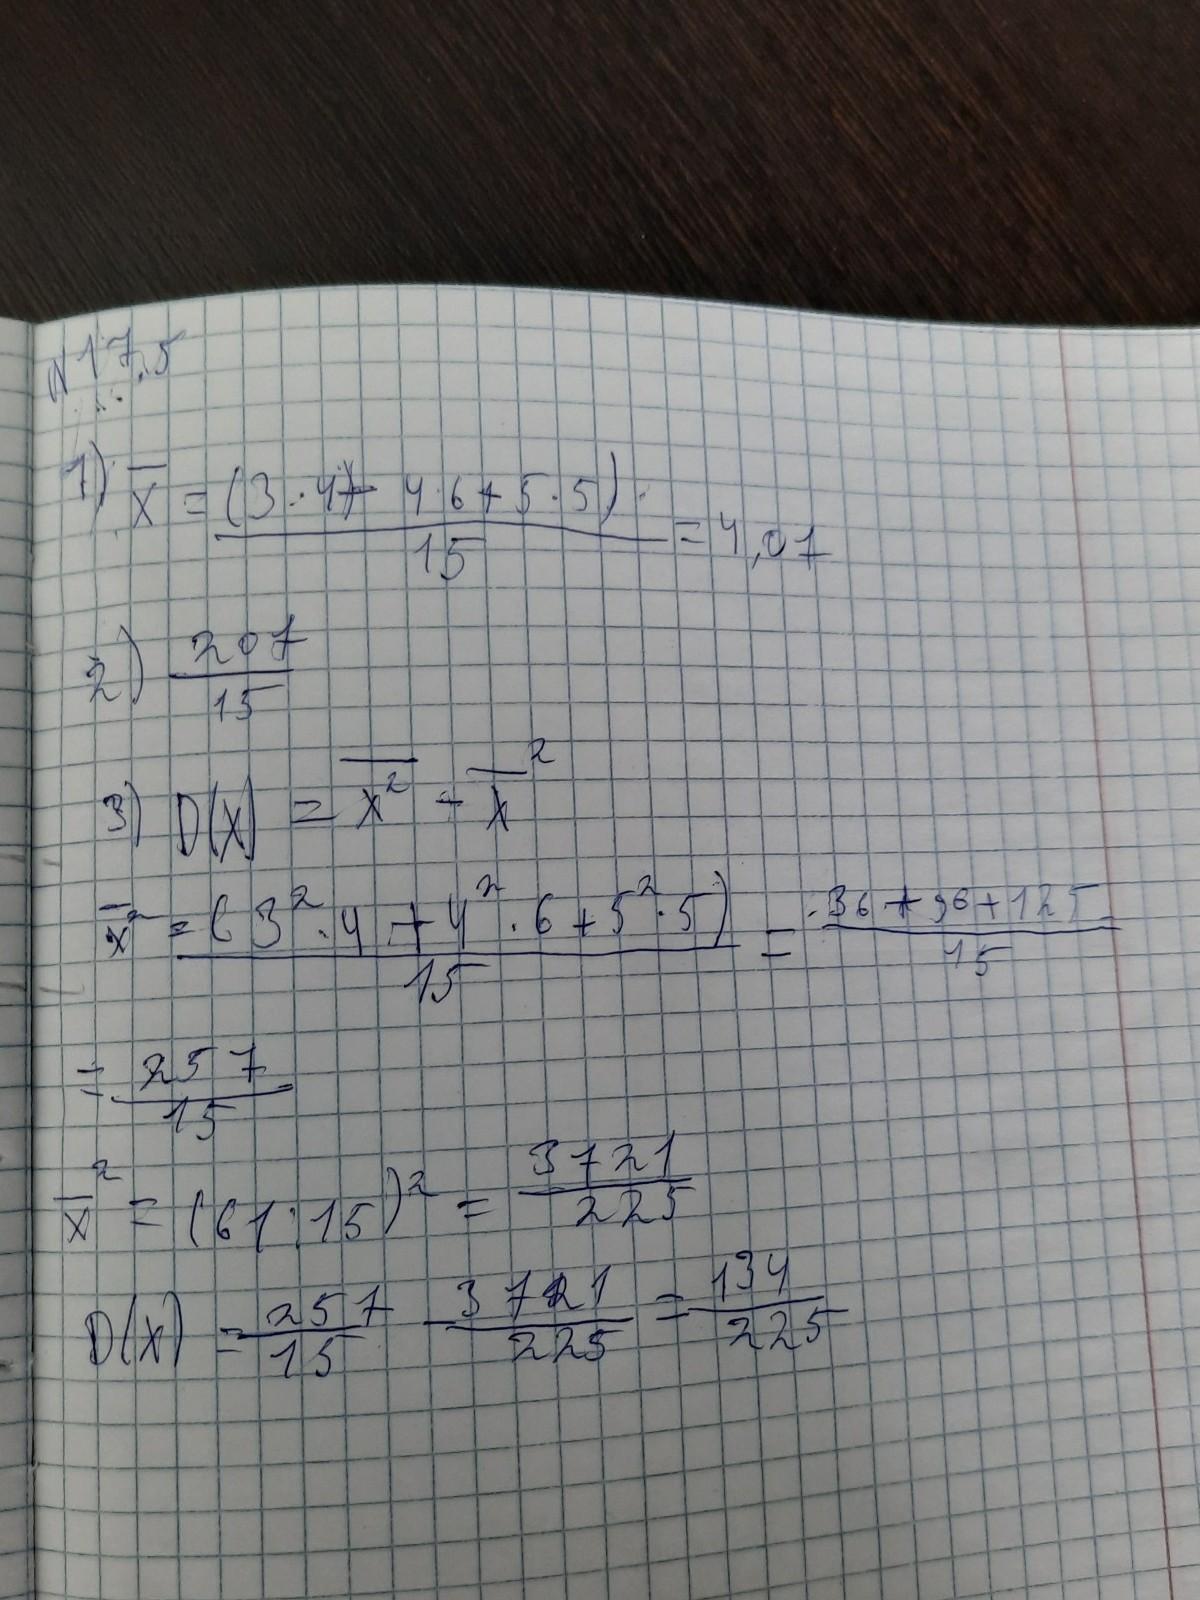 №17.5
1) x̅ = (3·4+ 4·6+5·5) / 15 = 4,07
2) 207/15
3) D(X) = \overline{x²} - x̅²
x̅² = (3²·4 + 4²·6 + 5²·5) / 15 = 36+96+125 / 15
= 257/15
x̅² = (61:15)² = 3721/225
D(X) = 257/15 - 3721/225 = 134/225